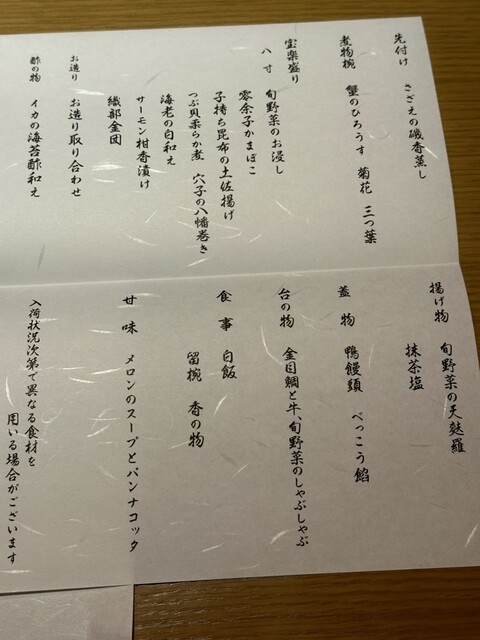 先付け　さざえの磯香蒸し
煮物椀　蟹のひろうす　菊花　三つ葉
宝楽盛り
八寸　旬野菜のお浸し
零余子かまぼこ
子持ち昆布の土佐揚げ
つぶ貝柔らか煮　穴子の八幡巻き
海老の白和え
サーモン柑香漬け
織部金団
お造り　お造り取り合わせ
酢の物　イカの海苔酢和え
揚げ物　旬野菜の天麩羅
抹茶塩
蓋物　鴨饅頭　べっこう餡
台の物　金目鯛と牛、旬野菜のしゃぶしゃぶ
食事　白飯
留椀　香の物
甘味　メロンのスープとパンナコッタ
入荷状況次第で異なる食材を
用いる場合がございます